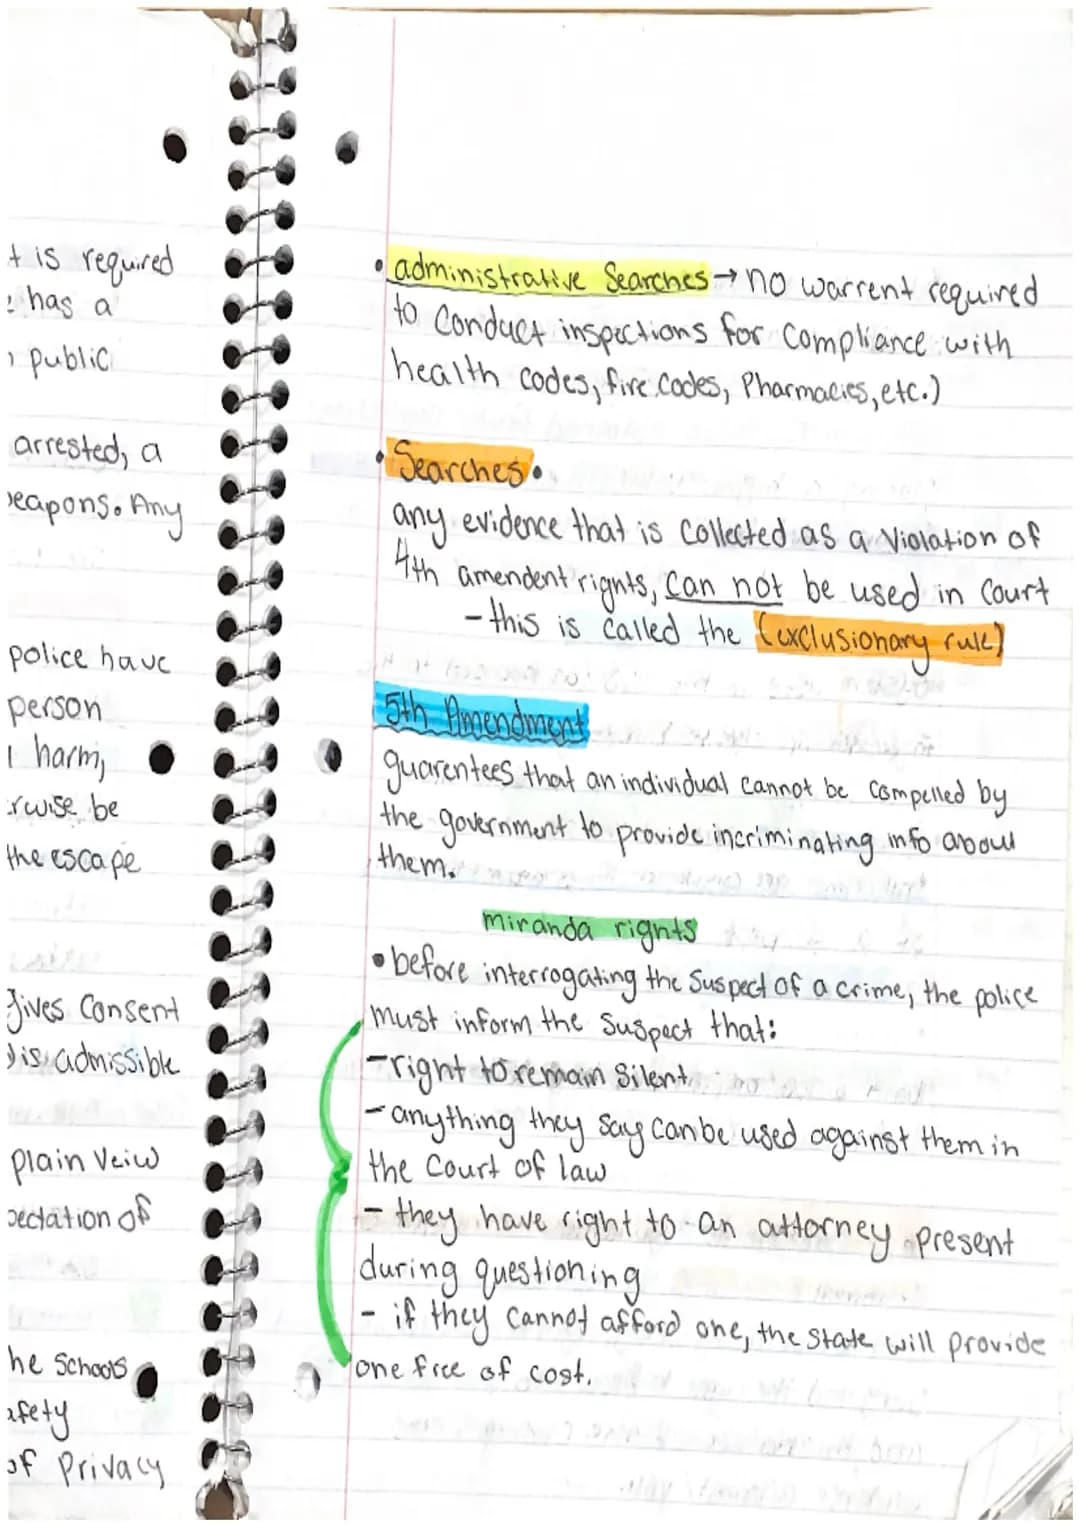 t is required
has a
public
arrested, a
eapons. Any
police have
person
harm,
rwise be
the escape
gives Consent
is admissible
plain Veiw
pectation of
he Schools
afety
of Privacy
• administrative Searches → no warrent required
to Conduct inspections for Compliance with
health codes, fire codes, Pharmacies, etc.)
• Searches •
any evidence that is Collected as a Violation of
4th amendent rights, Can not be used in Court
- this is called the (exclusionary rule)
5th Amendment
guarentees that an individual cannot be Compelled by
the government to provide incriminating info about
them.
miranda rights
• before interrogating the Suspect of a crime, the police
must inform the Suspect that:
- right to remain Silent
- anything they say can be used against them in
the Court of law
- they have right to an attorney present
during questioning
- if they cannot afford one, the State will provide
one free of cost.